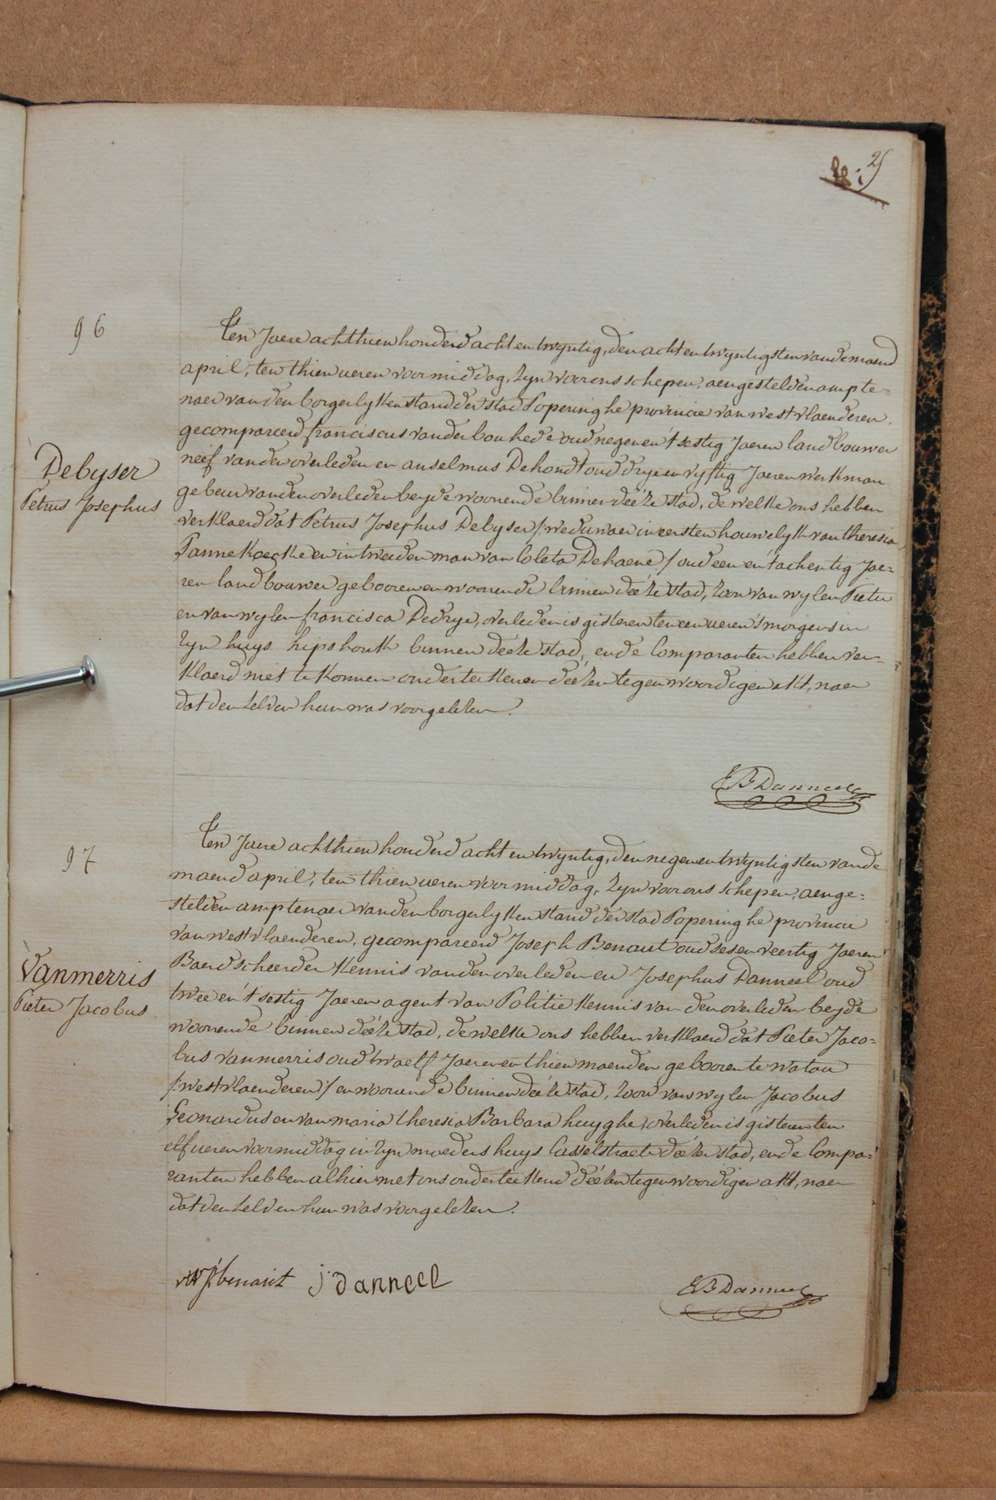 25
96
Debyser
Petrus Josephus
Ten Jaere achthien honderd acht en twyntig, den acht en twyntigsten van de maend
april, ten thien ueren voor middag, zyn voor ons schepen, aengestelden ampte-
naer van den borgerlyken stand der stad Poperinghe provincie van westvlaenderen,
gecompareerd franciscus vanderbouhede oud negen en 't sestig Jaeren landbouwer
neef van den overleden en anselmus Dehondt oud dry en vyftig Jaeren werkman
gebeur van den overleden beyde woonende binnen deéze stad, de welke ons hebben
verklaerd dat Petrus Josephus Debyser /weduwaer in eersten houwelyk van theresia
Pannekoecke en in tweeden man van Coleta Dehaene/ oud een en 'tachentig Jae-
ren landbouwer gebooren en woonende binnen deéze stad, zoon van wylen Pieter
en van wylen francisca Dedrye, overleden is gisteren ten een ueren 's morgens in
zyn huys hipshoek binnen deeze stad, en de Comparanten hebben ver-
klaerd niet te konnen onderteekenen deézen tegenwoordigen akt, naer
dat den zelven hun was voorgelezen.
E B Danneel
97
Vanmerris
Pieter Jacobus
Ten Jaere achthien honderd acht en twyntig, den negen en twyntigsten van de
maend april, ten thien ueren voor middag, zyn voor ons schepen, aenge-
stelden amptenaer van den borgerlyken stand der stad Poperinghe provincie
van westvlaenderen, gecompareerd Joseph Benaut oud ses en veertig Jaeren
Baerdscheerder kennis van den overleden en Josephus Danneel oud
twee en 't sestig Jaeren agent van Politie kennis van den overleden beyde
woonende binnen deéze stad, de welke ons hebben verklaerd dat Pieter Jaco-
bus vanmerris oud twaelf Jaeren en thien maenden gebooren te watou
/westvlaenderen/ en woonende binnen deéze stad, zoon van wylen Jacobus
Leonardus en van maria theresia Barbara huyghe, overleden is gisteren ten
elf ueren voor middag in zyn moeders huys Casselstraete deéze stad, en de Compa-
ranten hebben alhier met ons onderteekend deézen tegenwoordigen akt, naer
dat den zelven hun was voorgelezen.
benaut
j danneel
E B Danneel